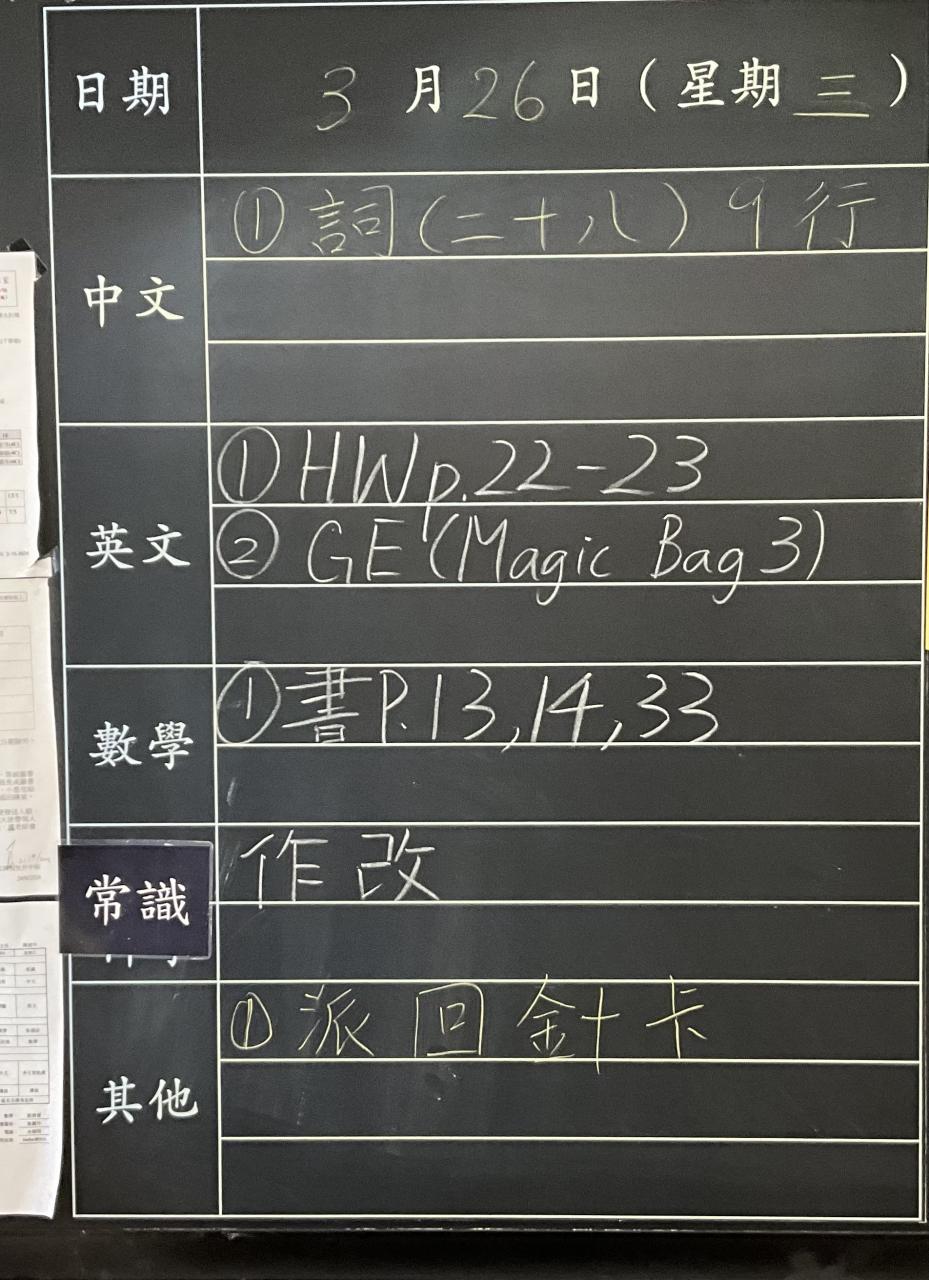 日期 3 月 26 日 (星期 三 )
中文 ① 詞(二十八) 9 行
英文 ① HW p.22-23
② GE (Magic Bag 3)
數學 ① 書 P.13, 14, 33
常識 作 改
其他 ① 派 回 針 卡